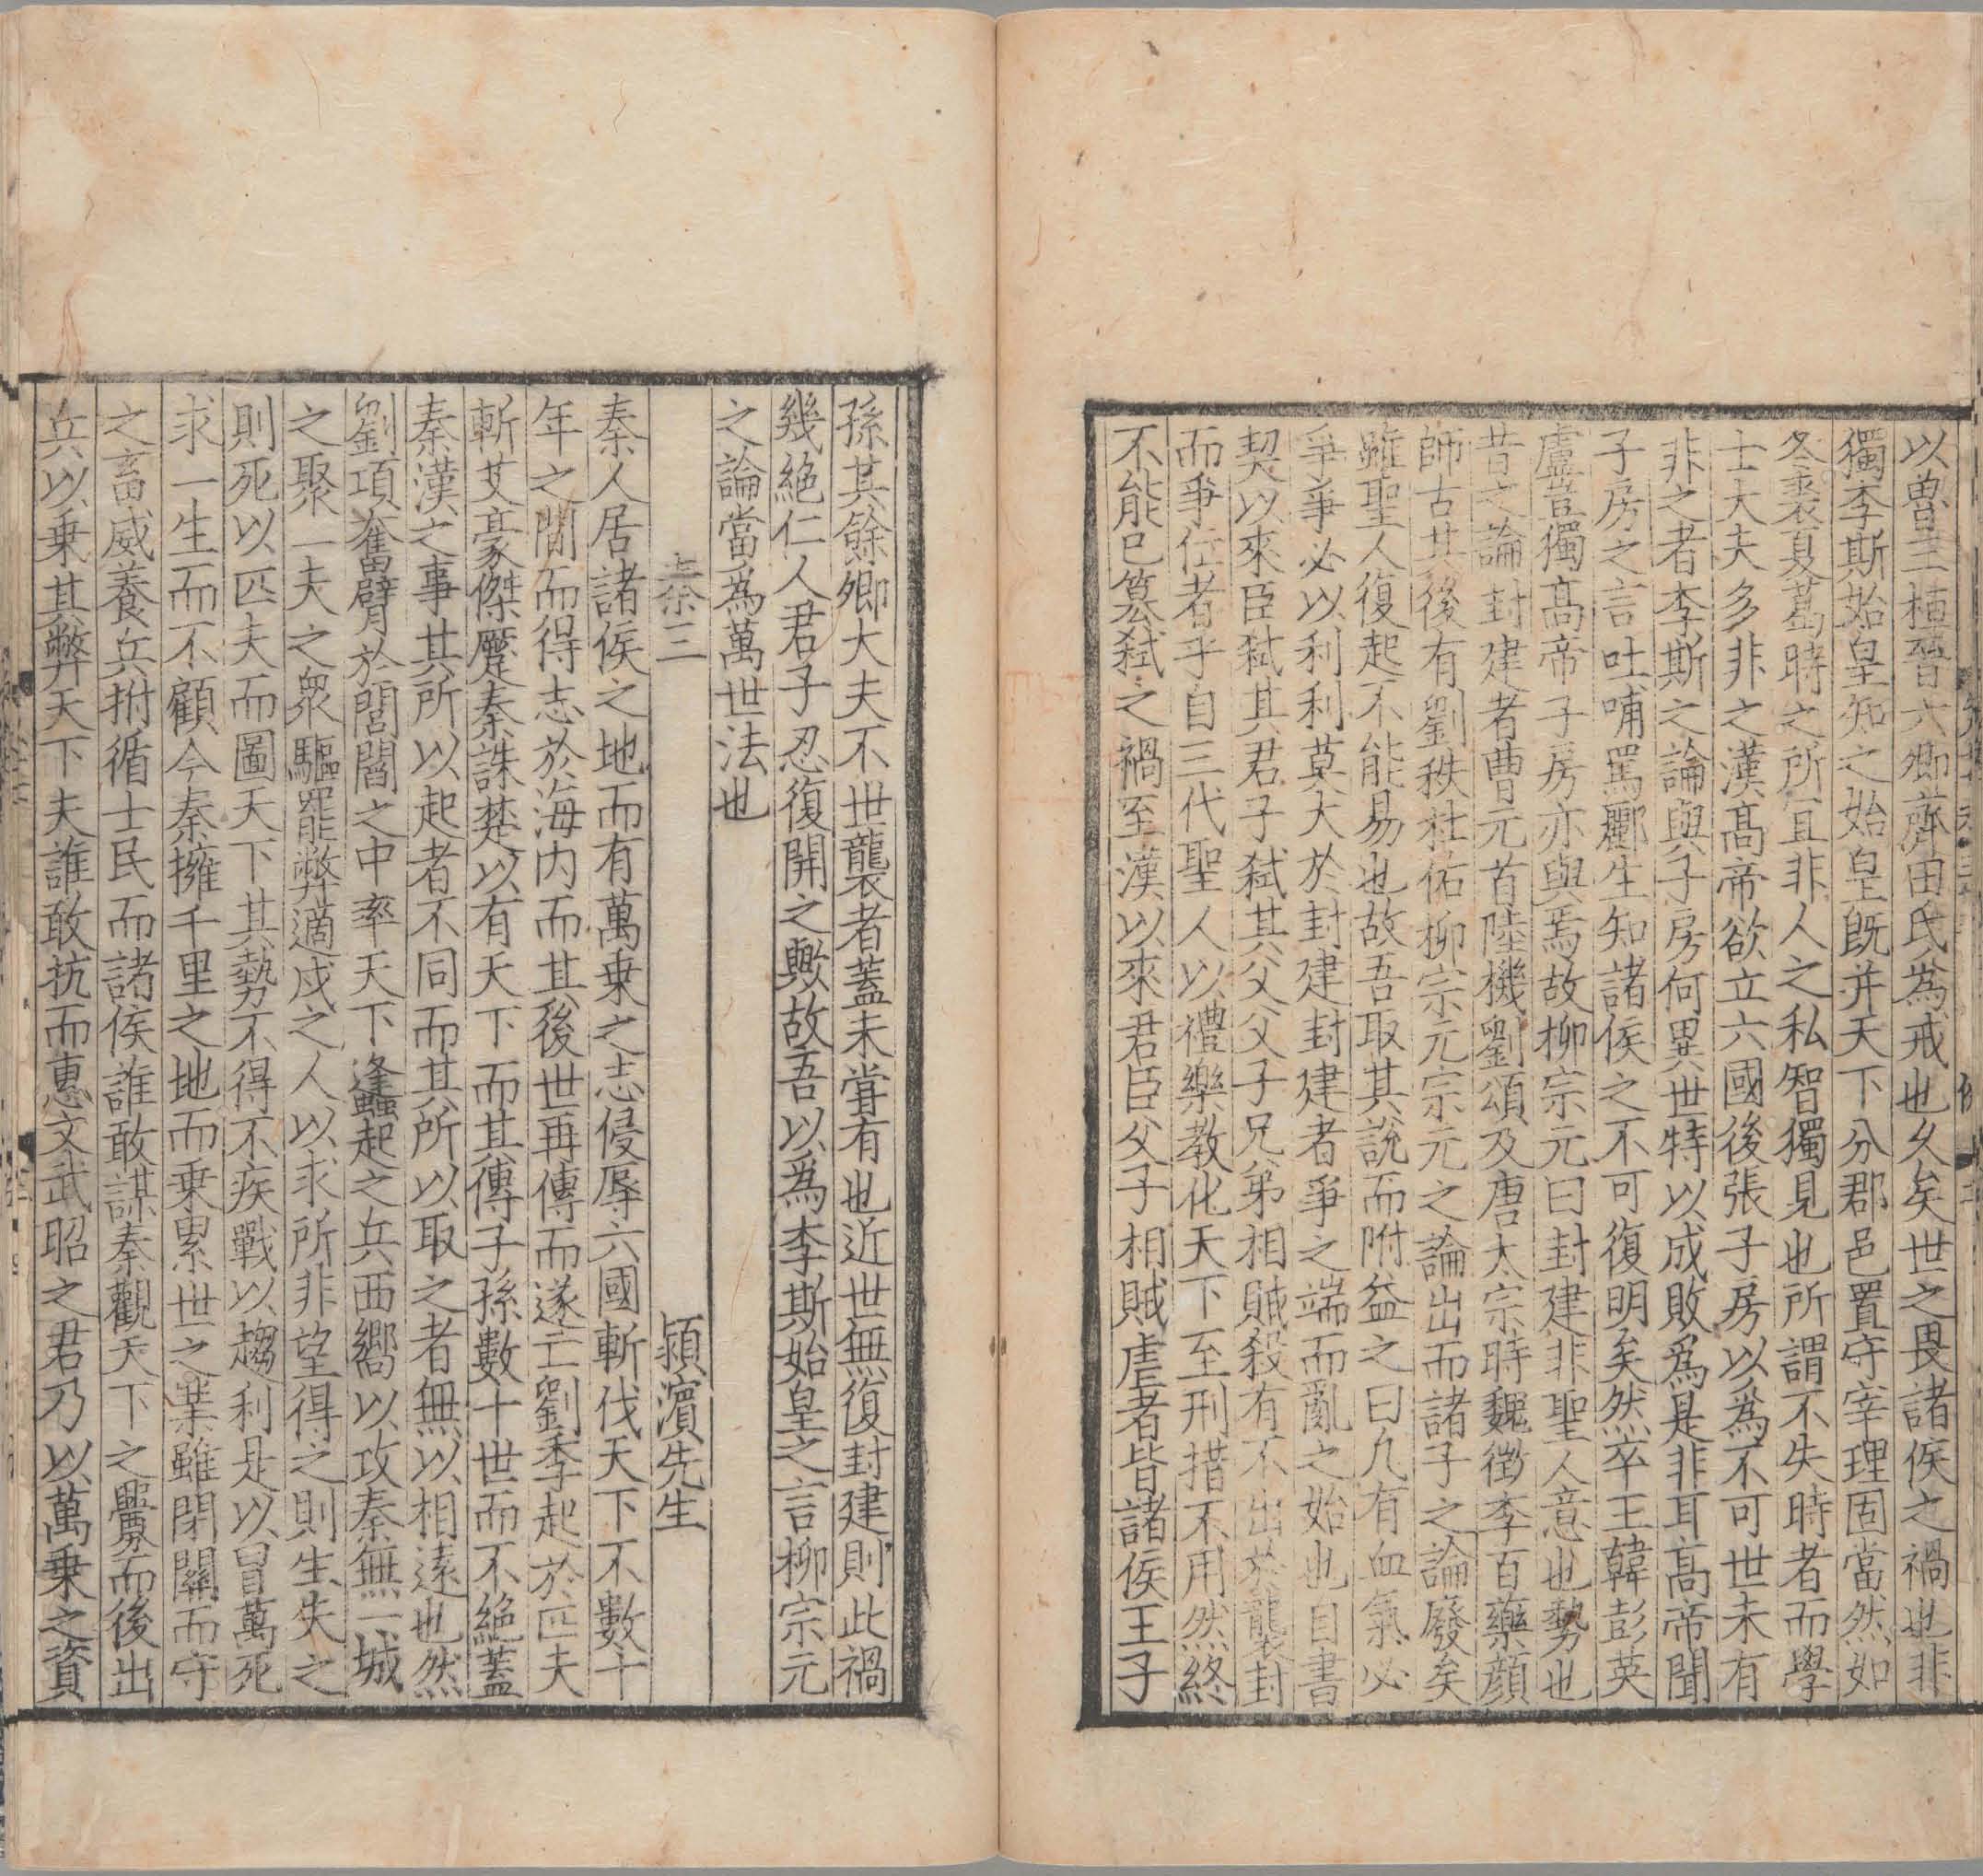 以魯三桓晉六卿齊田氏為戒也乆矣世之畏諸侯之禍也非
獨李斯始皇知之始皇旣并天下分郡邑置守宰理固當然如
冬裘夏葛時之所宜非人之私智獨見也所謂不失時者而學
士大夫多非之漢髙帝欲立六國後張子房以為不可世未有
非之者李斯之論與子房何異世特以成敗爲是非耳髙帝聞
子房之言吐哺罵酈生知諸侯之不可復明矣然卒王韓彭英
盧豈獨髙帝子房亦與焉故柳宗元曰封建非聖人意也勢也
昔之論封建者曹元首陸機劉頌及唐太宗時魏徴李百藥顔
師古其後有劉秩杜佑柳宗元宗元之論出而諸子之論廢矣
雖聖人復起不能易也故吾取其說而附益之曰凡有血氣必
爭爭必以利利莫大於封建封建者爭之端而亂之始也自書
契以來臣弑其君子弑其父父子兄弟相賊殺有不出於襲封
而爭位者乎自三代聖人以禮樂教化天下至刑措不用然終
不能已簒弑之禍至漢以來君臣父子相賊虐者皆諸侯王子
孫其餘卿大夫不世襲者蓋未嘗有也近世無復封建則此禍
幾絶仁人君子忍復開之歟故吾以為李斯始皇之言柳宗元
之論當為萬世法也
秦三 潁濱先生
秦人居諸侯之地而有萬乗之志侵辱六國斬伐天下不數十
年之間而得志於海内而其後世再傳而遂亡劉季起於匹夫
斬艾豪傑蹷秦誅楚以有天下而其傳子孫數十世而不絶蓋
秦漢之事其所以起者不同而其所以取之者無以相逺也然
劉項奮臂於閭閻之中率天下蠭起之兵西嚮以攻秦無一城
之聚一夫之衆驅罷弊適戍之人以求所非望得之則生失之
則死以匹夫而圖天下其勢不得不疾戰以趨利是以冒萬死
求一生而不顧今秦擁千里之地而乗累世之業雖閉關而守
之畜威養兵拊循士民而諸侯誰敢謀秦觀天下之釁而後出
兵以乗其弊天下夫誰敢抗而惠文武昭之君乃以萬乗之資